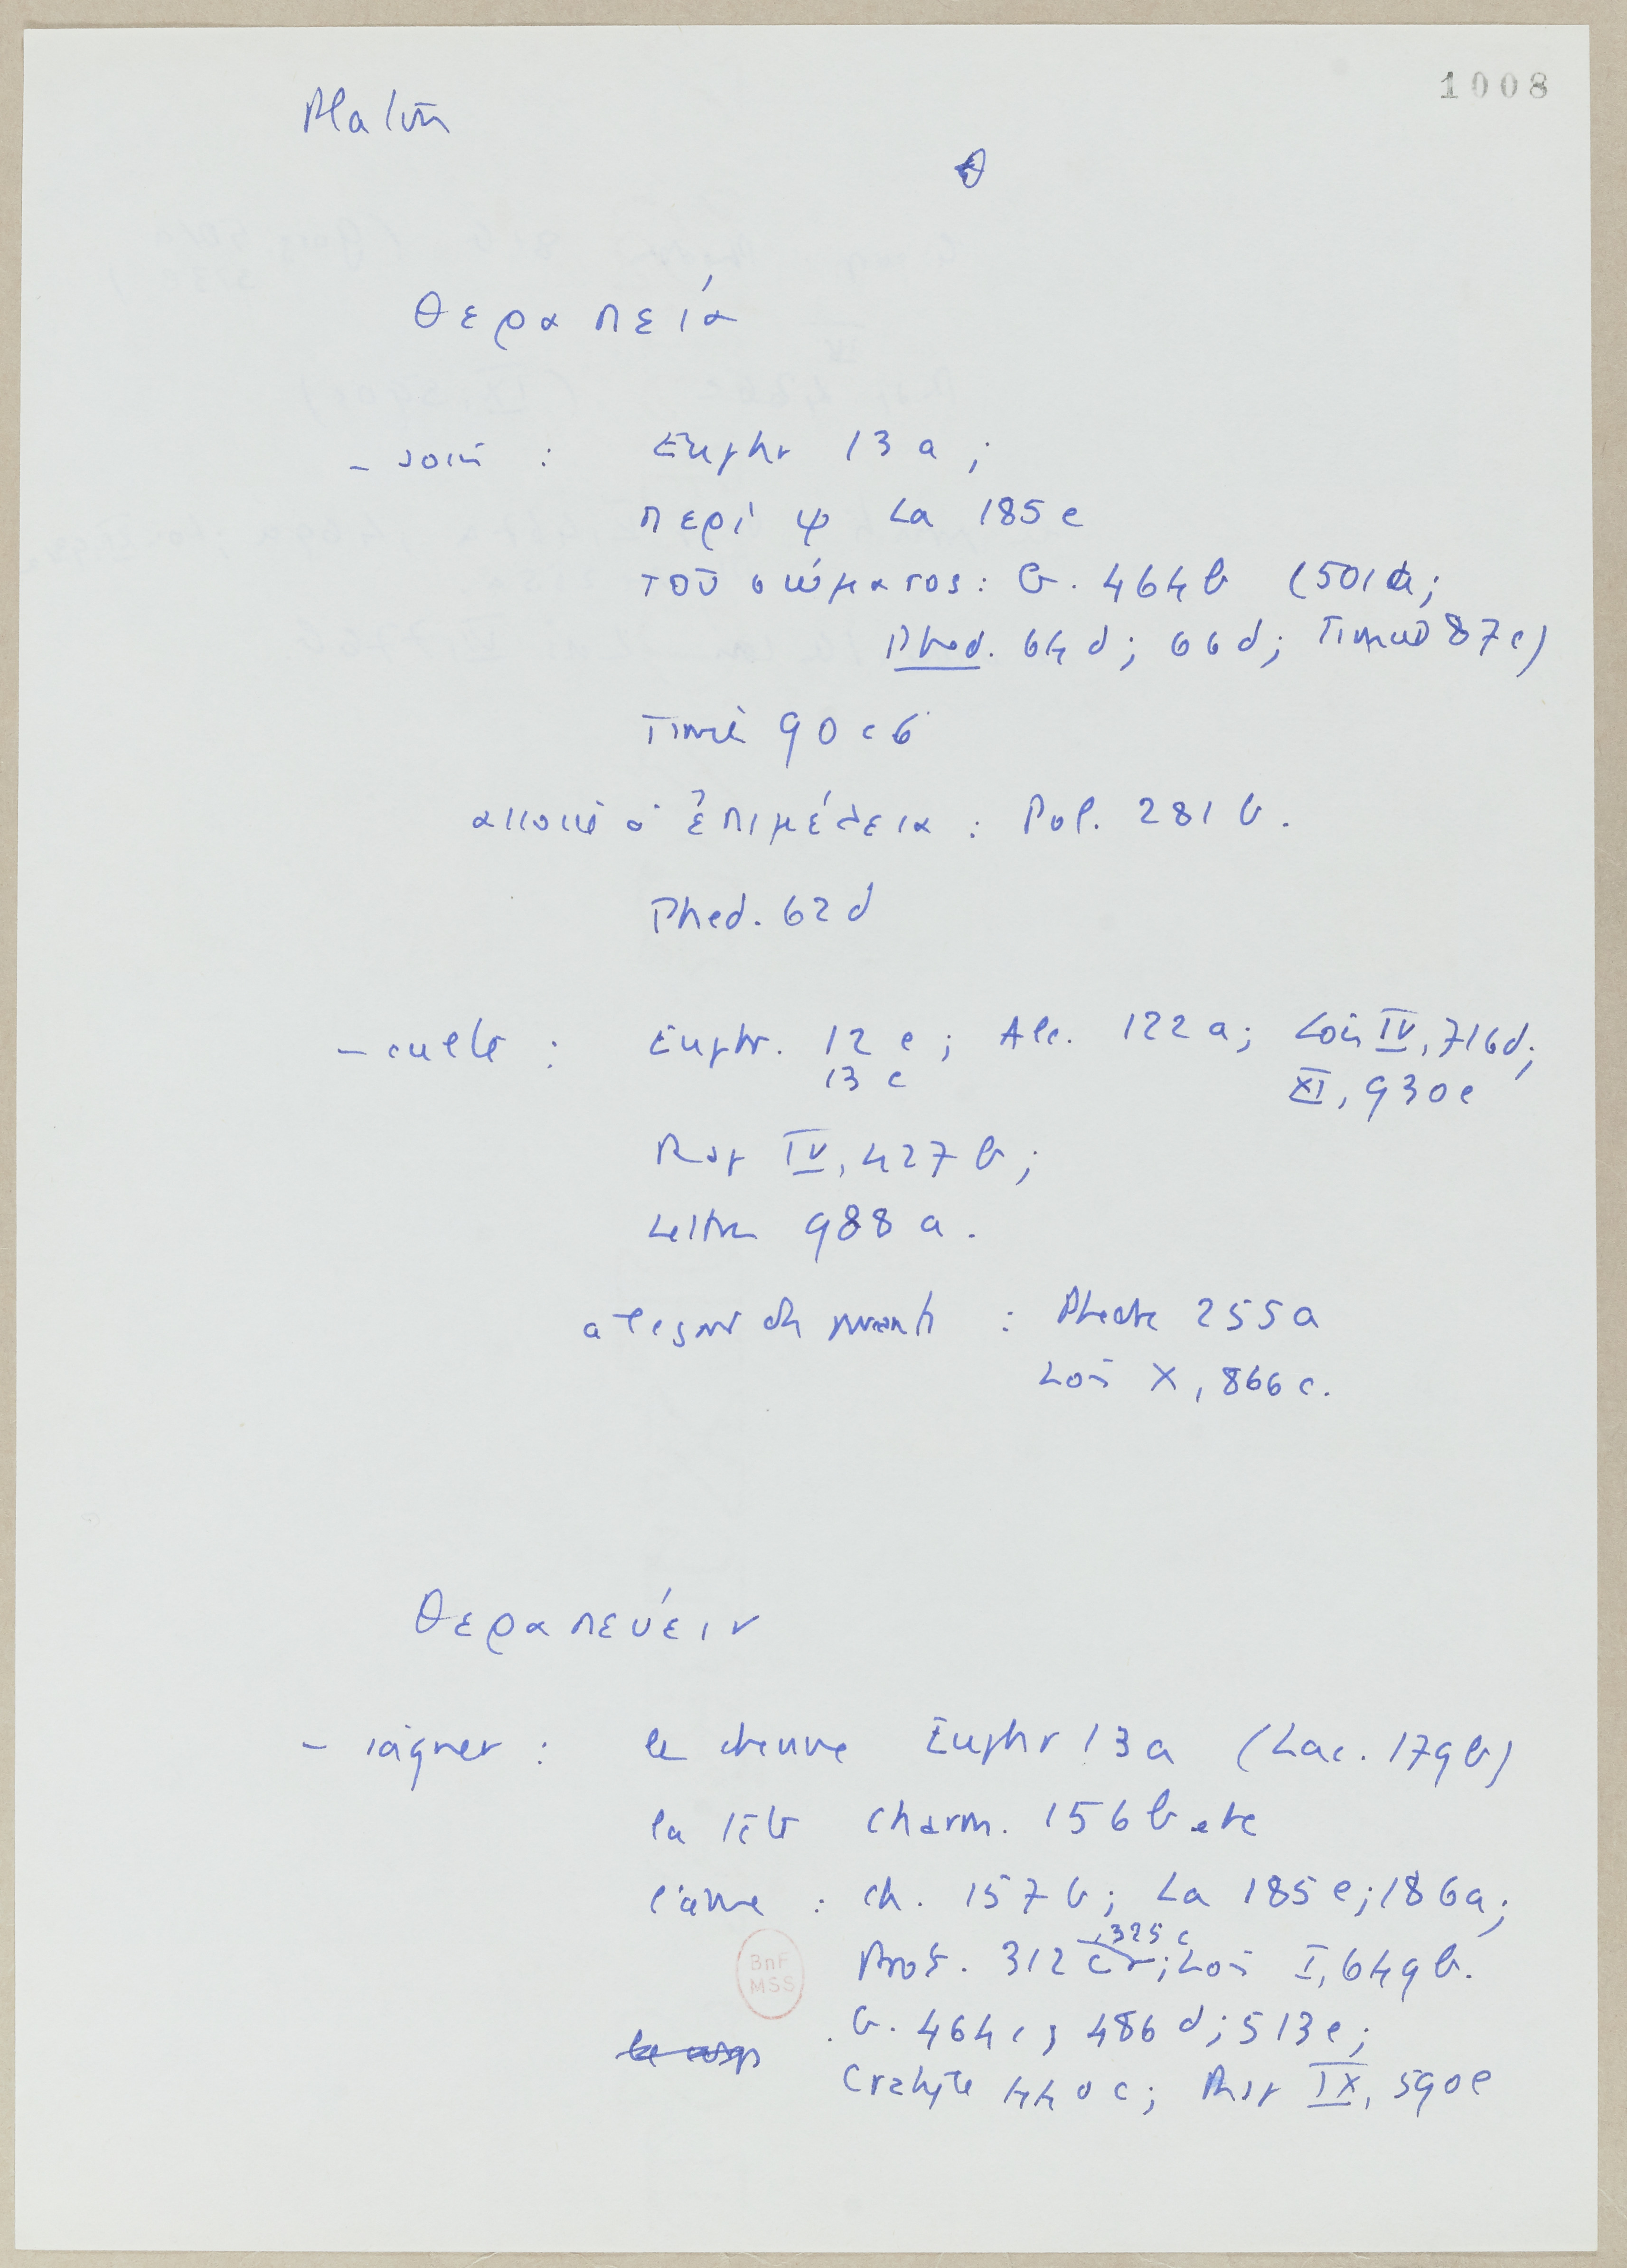 1008
Platon
θ
θεραπεία
- soin : Euphr 13 a ;
περὶ ψ La 185 e
τοῦ σώματος : G. 464 b (501 a ;
Phed. 64 d ; 66 d ; Timée 87 c)
Timée 90 c 6
associé à ἐπιμέλεια : Pol. 281 b.
Phed. 62 d
- culte : Euphr. 12 e ; Alc. 122 a ; Lois IV, 716 d ;
13 c XI, 930 e
Rep IV, 427 b ;
Lettre 988 a.
a l'egard des parents : Phedre 255 a
Lois X, 866 c.
θεραπεύειν
- soigner : les chevaux Euphr 13 a (Lac. 179 b)
la tête Charm. 156 b etc
l'âme : Ch. 157 b ; La 185 e ; 186 a ;
, 325 c
Prot. 312 c ; Lois I, 649 b.
BnF
MSS
G. 464 c ; 486 d ; 513 e ;
le corps
Cratyle 440 c ; Rep IX, 590 e